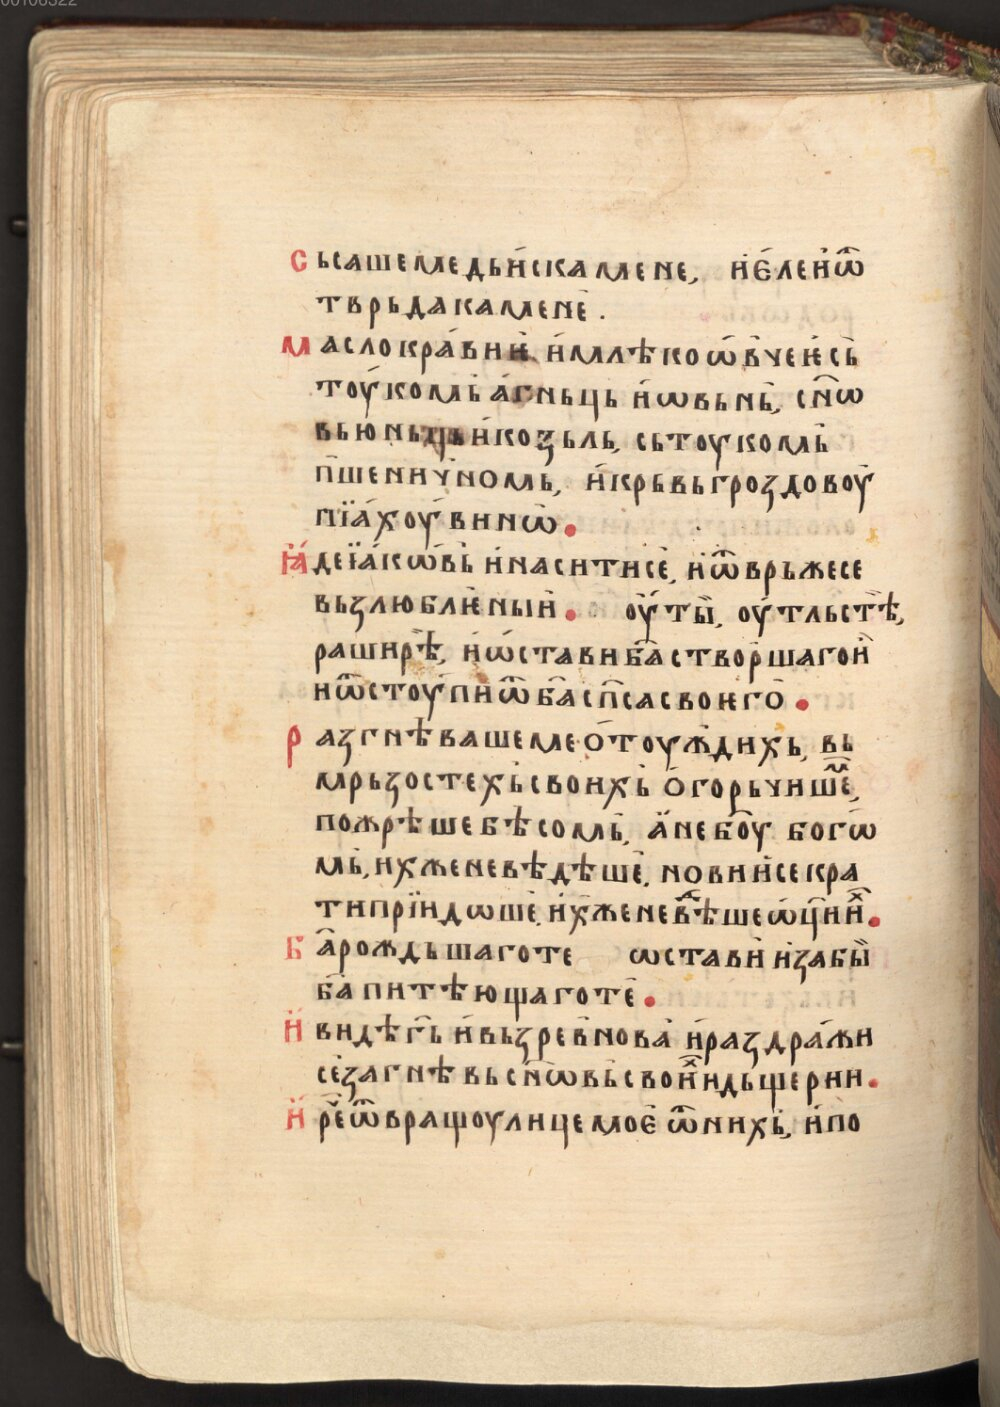 00106322
Сьсаше медь ис камене, и ѥлеи ѿ
тврьда камене.
Масло кравиѥ и млѣко ѡвчеѥ сь
тоукомь агньць и ѡвьнь, сн҃ѡ
вь юньць и козьль, сь тоукомь
пшеничномь, и крьвь гроздовоу
пїахоу винѡ.
Ꙗде їакѡвь и насити се, и ѿврьже се
вьзлюблѥныи. оуты, оутльстѣ,
раширѣ, и ѡстави ба створшаго и
и ѿстоупи ѿ ба спса своѥго.
Разгнѣваше ме ѡ тоуждихь, вь
мрьзостехь своихь ѡгорьчише ме,
пожрѣше бѣсомь, а не боу богѡ
мь, ихже не вѣдѣше. нови и секра
ти прїидѡше, ихже не вѣше ѡци их.
Ба рождьшаго те ѡстави и забы
ба питѣющаго те.
И виде гь и вьзревнова и раздражи
се за гнѣвь сн҃ѡвь своих и дьщерии.
И ре ѿвращоу лице моѥ ѿ нихь, и по